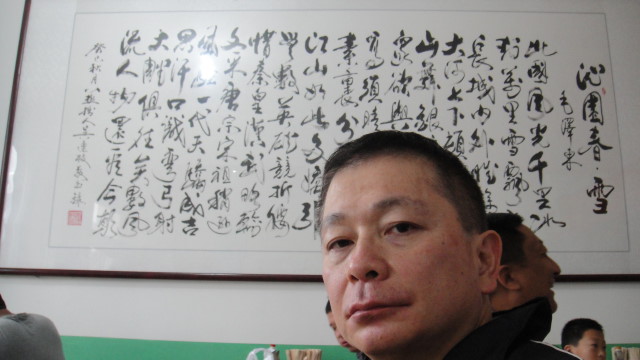 沁園春雪
毛澤東
北國風光千里冰
封萬里雪飄
長城內外惟餘
大河上下頓
山舞銀
欲與
素裹分
江山如此多嬌
無數英雄競折腰
惜秦皇漢武略輸
文采唐宗宋祖稍遜
風騷一代天驕成吉
思汗只識彎弓射
大雕俱往矣數風
流人物還看今朝